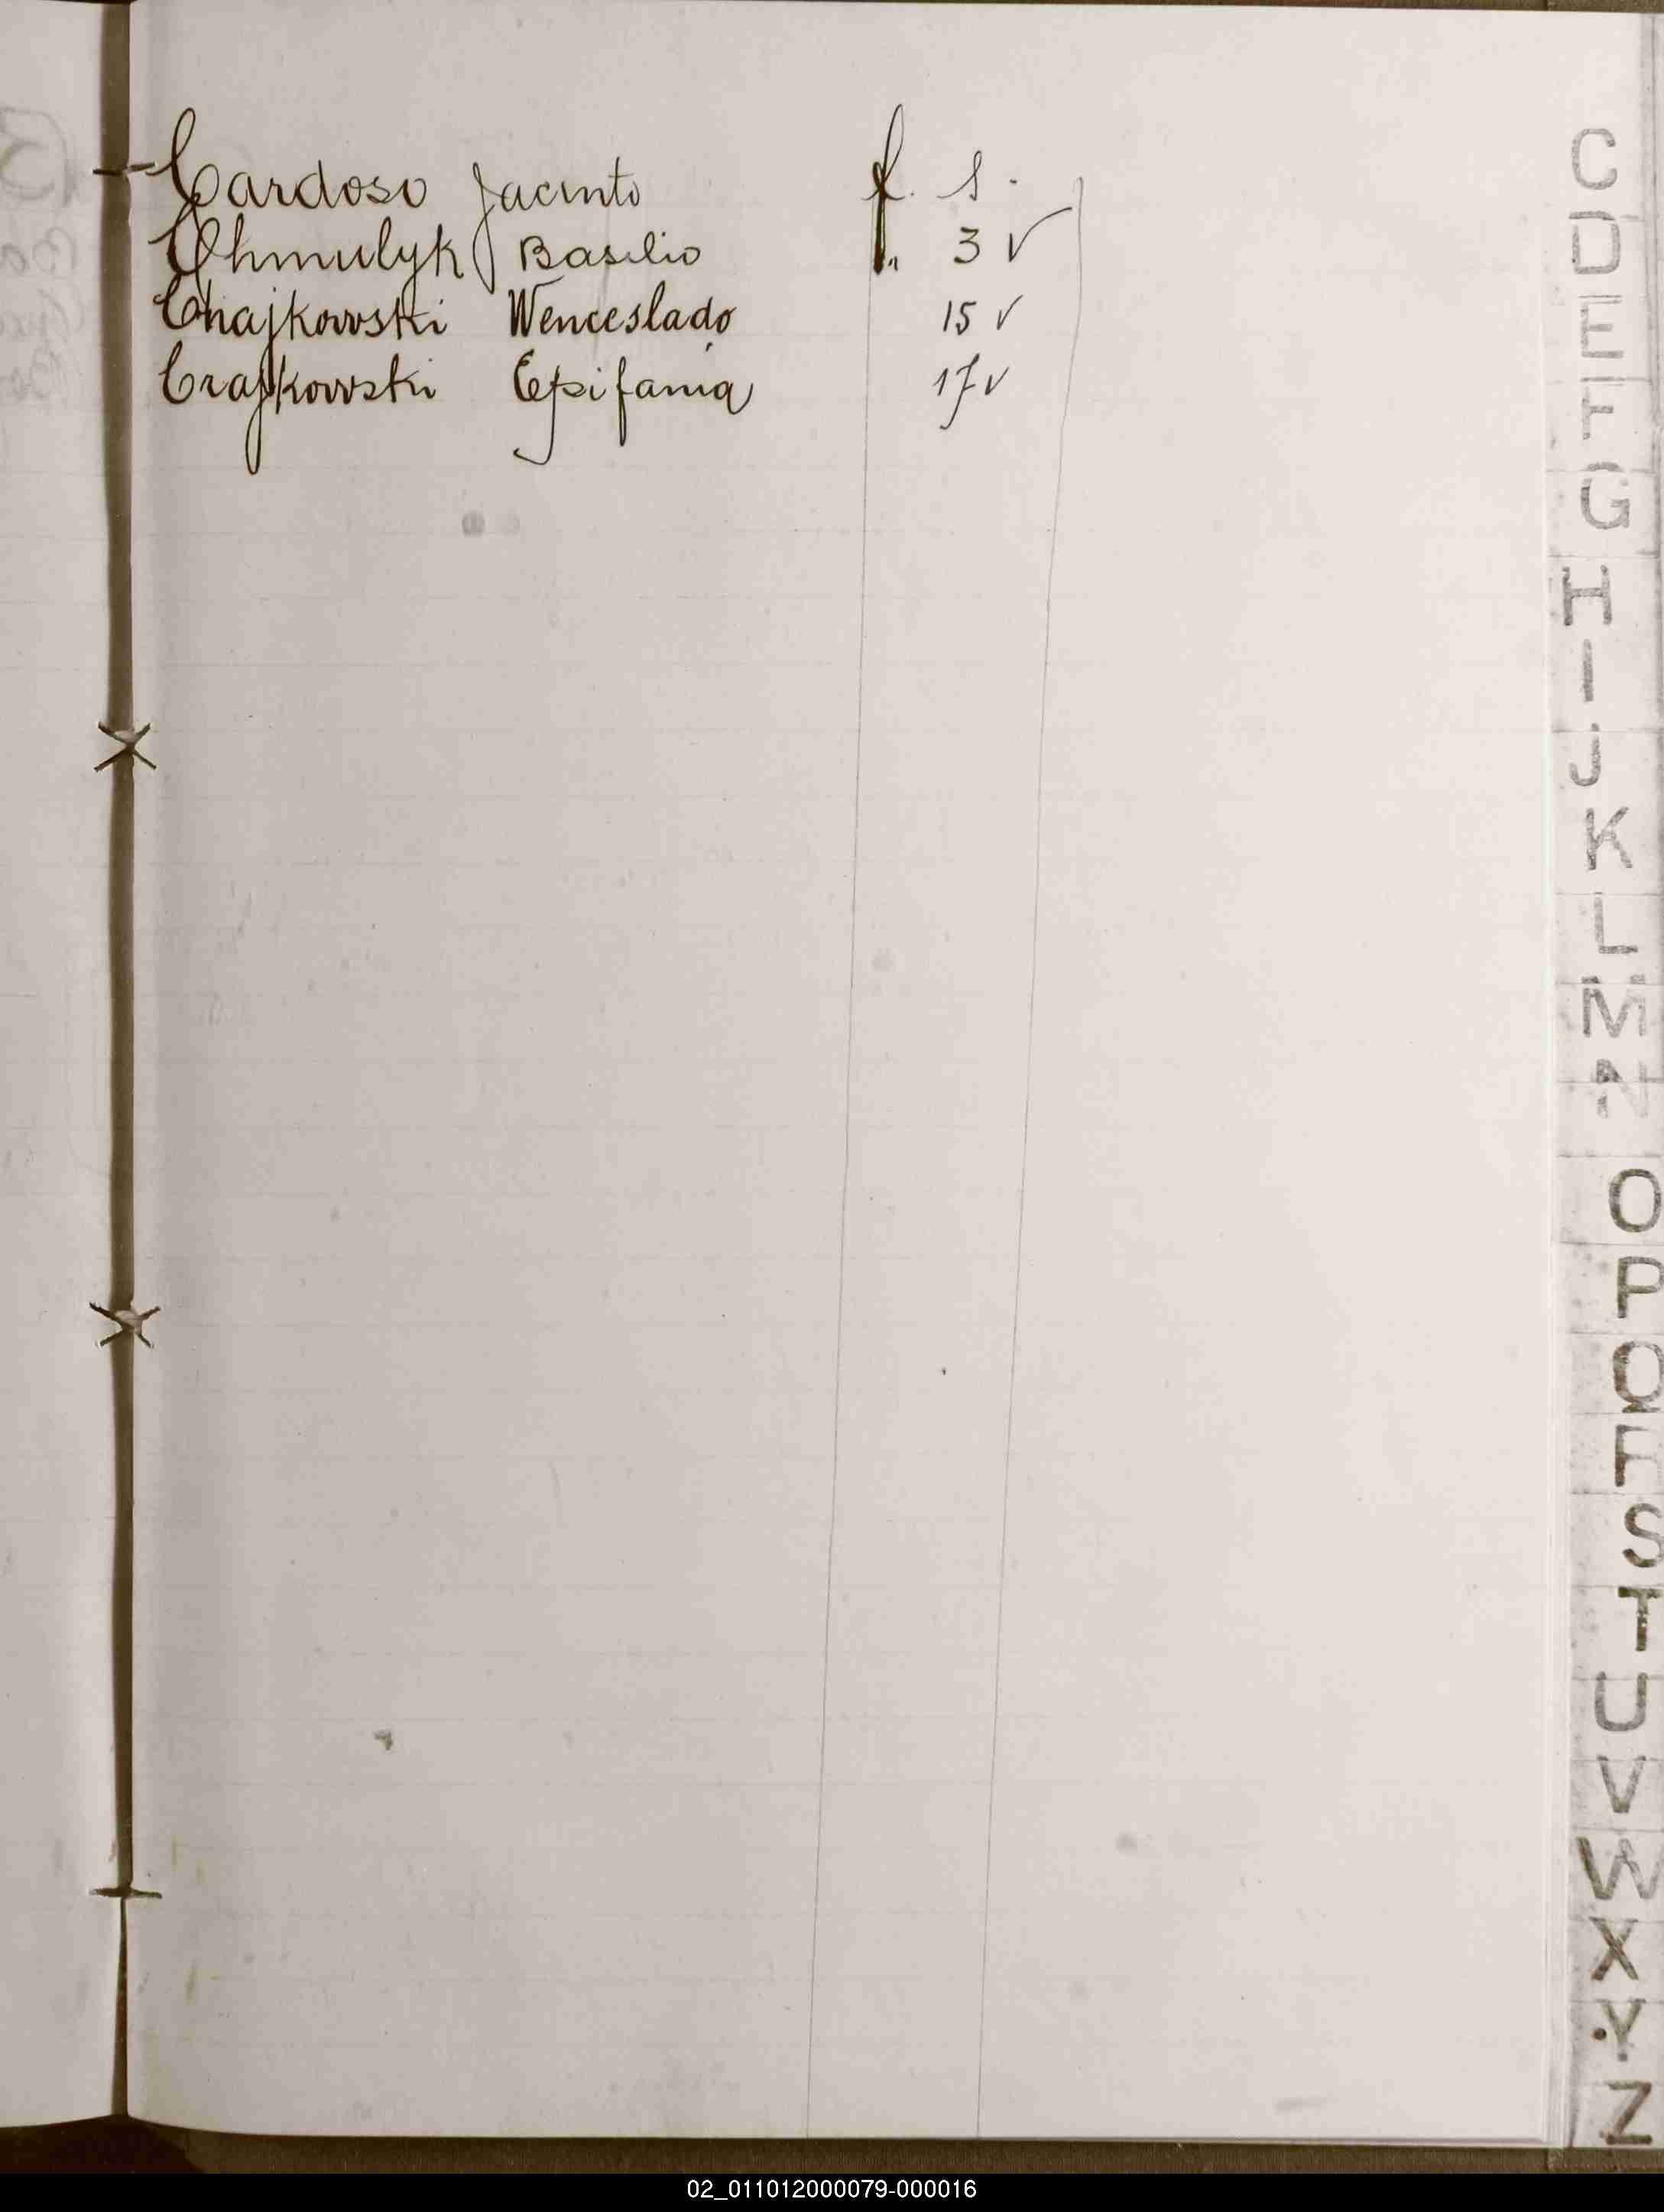 Cardoso Jacinto f. 1.
Chmulyk Basilio f. 3 v
Chajkowski Wenceslado 15 v
Crajkowski Epifania 17 v
C
D
E
F
G
H
I
J
K
L
M
N
O
P
Q
R
S
T
U
V
W
X
Y
Z
02_011012000079-000016